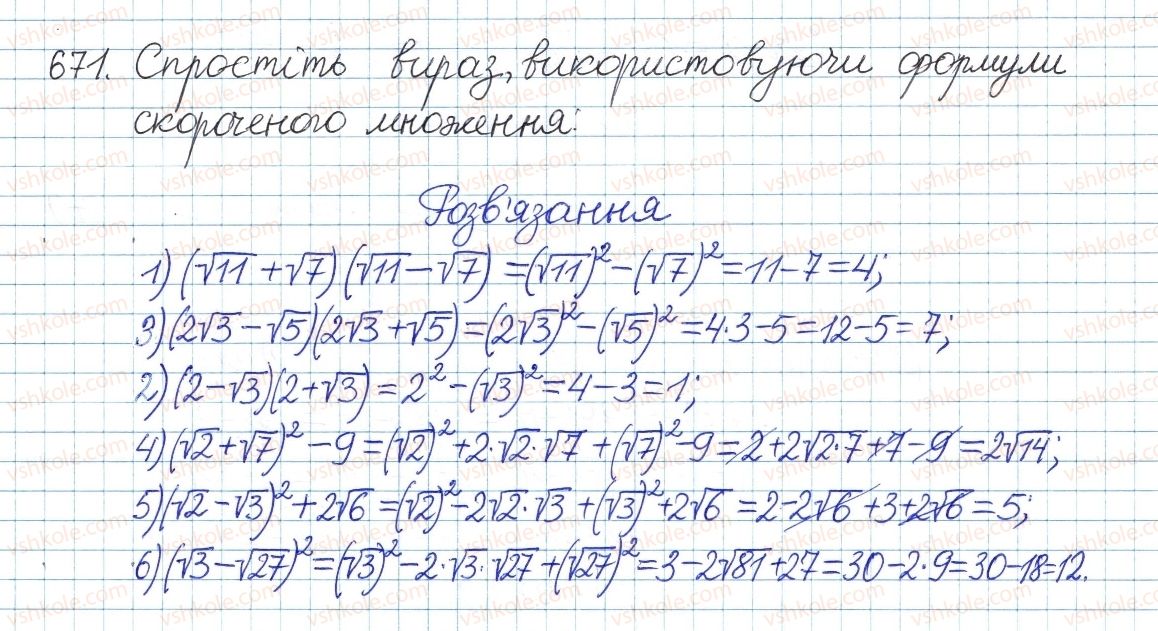 671. Спростіть вираз, використовуючи формули
скороченого множення:
Розв'язання
1) (√11 + √7)(√11 - √7) = (√11)² - (√7)² = 11 - 7 = 4;
3) (2√3 - √5)(2√3 + √5) = (2√3)² - (√5)² = 4·3 - 5 = 12 - 5 = 7;
2) (2 - √3)(2 + √3) = 2² - (√3)² = 4 - 3 = 1;
4) (√2 + √7)² - 9 = (√2)² + 2·√2·√7 + (√7)² - 9 = 2 + 2√2·7 + 7 - 9 = 2√14;
5) (√2 - √3)² + 2√6 = (√2)² - 2√2·√3 + (√3)² + 2√6 = 2 - 2√6 + 3 + 2√6 = 5;
6) (√3 - √27)² = (√3)² - 2·√3·√27 + (√27)² = 3 - 2√81 + 27 = 30 - 2·9 = 30 - 18 = 12.
vshkole.com